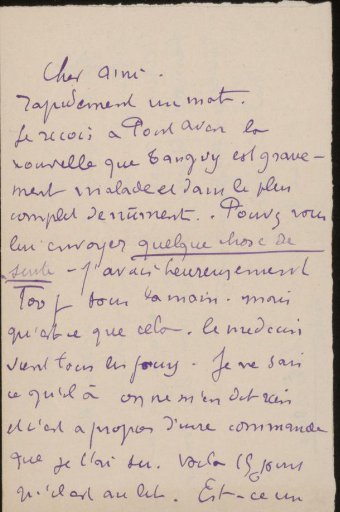 Cher ami.
rapidement un mot.
Je reçois a Pont aven la
nouvelle que Tanguy est grave-
ment malade et dans le plus
complet denûment.. Pouvez vous
lui envoyer quelque chose de
suite - j'avais heureusement
100 f sous la main. mais
qu'est ce que cela. le medecin
vient tous les jours - Je ne sais
ce qu'il à on ne m'en dit rien
et c'est a propos d'une commande
que je l'ai su. Voila 15 jours
qu'il est au lit. Est-ce un